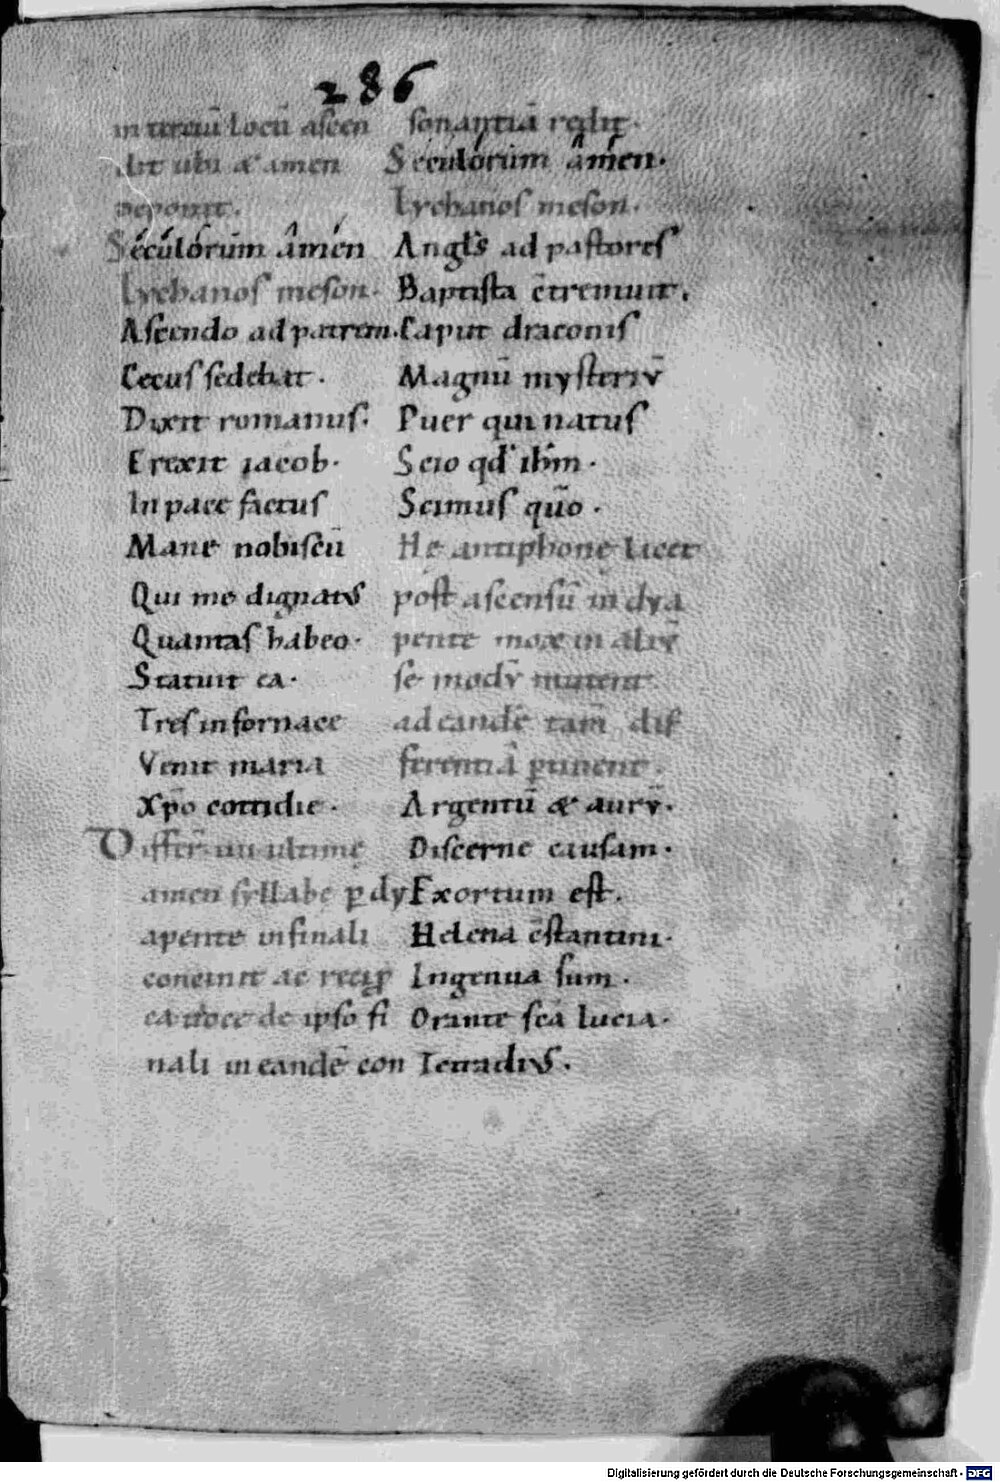 286
in tertiū locū ascen
dit ubi & amen
deponit.
Seculorum amen
Lychanos meson.
Ascendo ad patrem.
Cecus sedebat.
Dixit romanus.
Erexit iacob.
In pace factus
Mane nobiscū
Qui me dignatus
Quantas habeo.
Statuit ea.
Tres in fornace
Venit maria
Xp̄o cottidie.
ultimę
amen syllabe p̱ dy
apente in finali
concinit ac
de ipso fi
nali in eandē con
sonantiā redit.
Seculorum amen.
Lychanos meson.
Angl̄s ad pastores
Baptista c̄tremuit.
Caput draconis
Magnū mysteriv̄
Puer qui natus
Scio qd' ih̄m.
Scimus qm̄o.
Hę antiphonę licet
post ascensū in dya
pente mox in aliv̄
se modv̄ mutent
ad eandē tam̄ dif
ferentiā p̱tinent.
Argentū & aurv̄.
Discerne causam.
Exortum est.
Helena c̄stantini.
Ingenua sum.
Orante sc̄a lucia.
Tetradius.
Digitalisierung gefördert durch die Deutsche Forschungsgemeinschaft - DFG